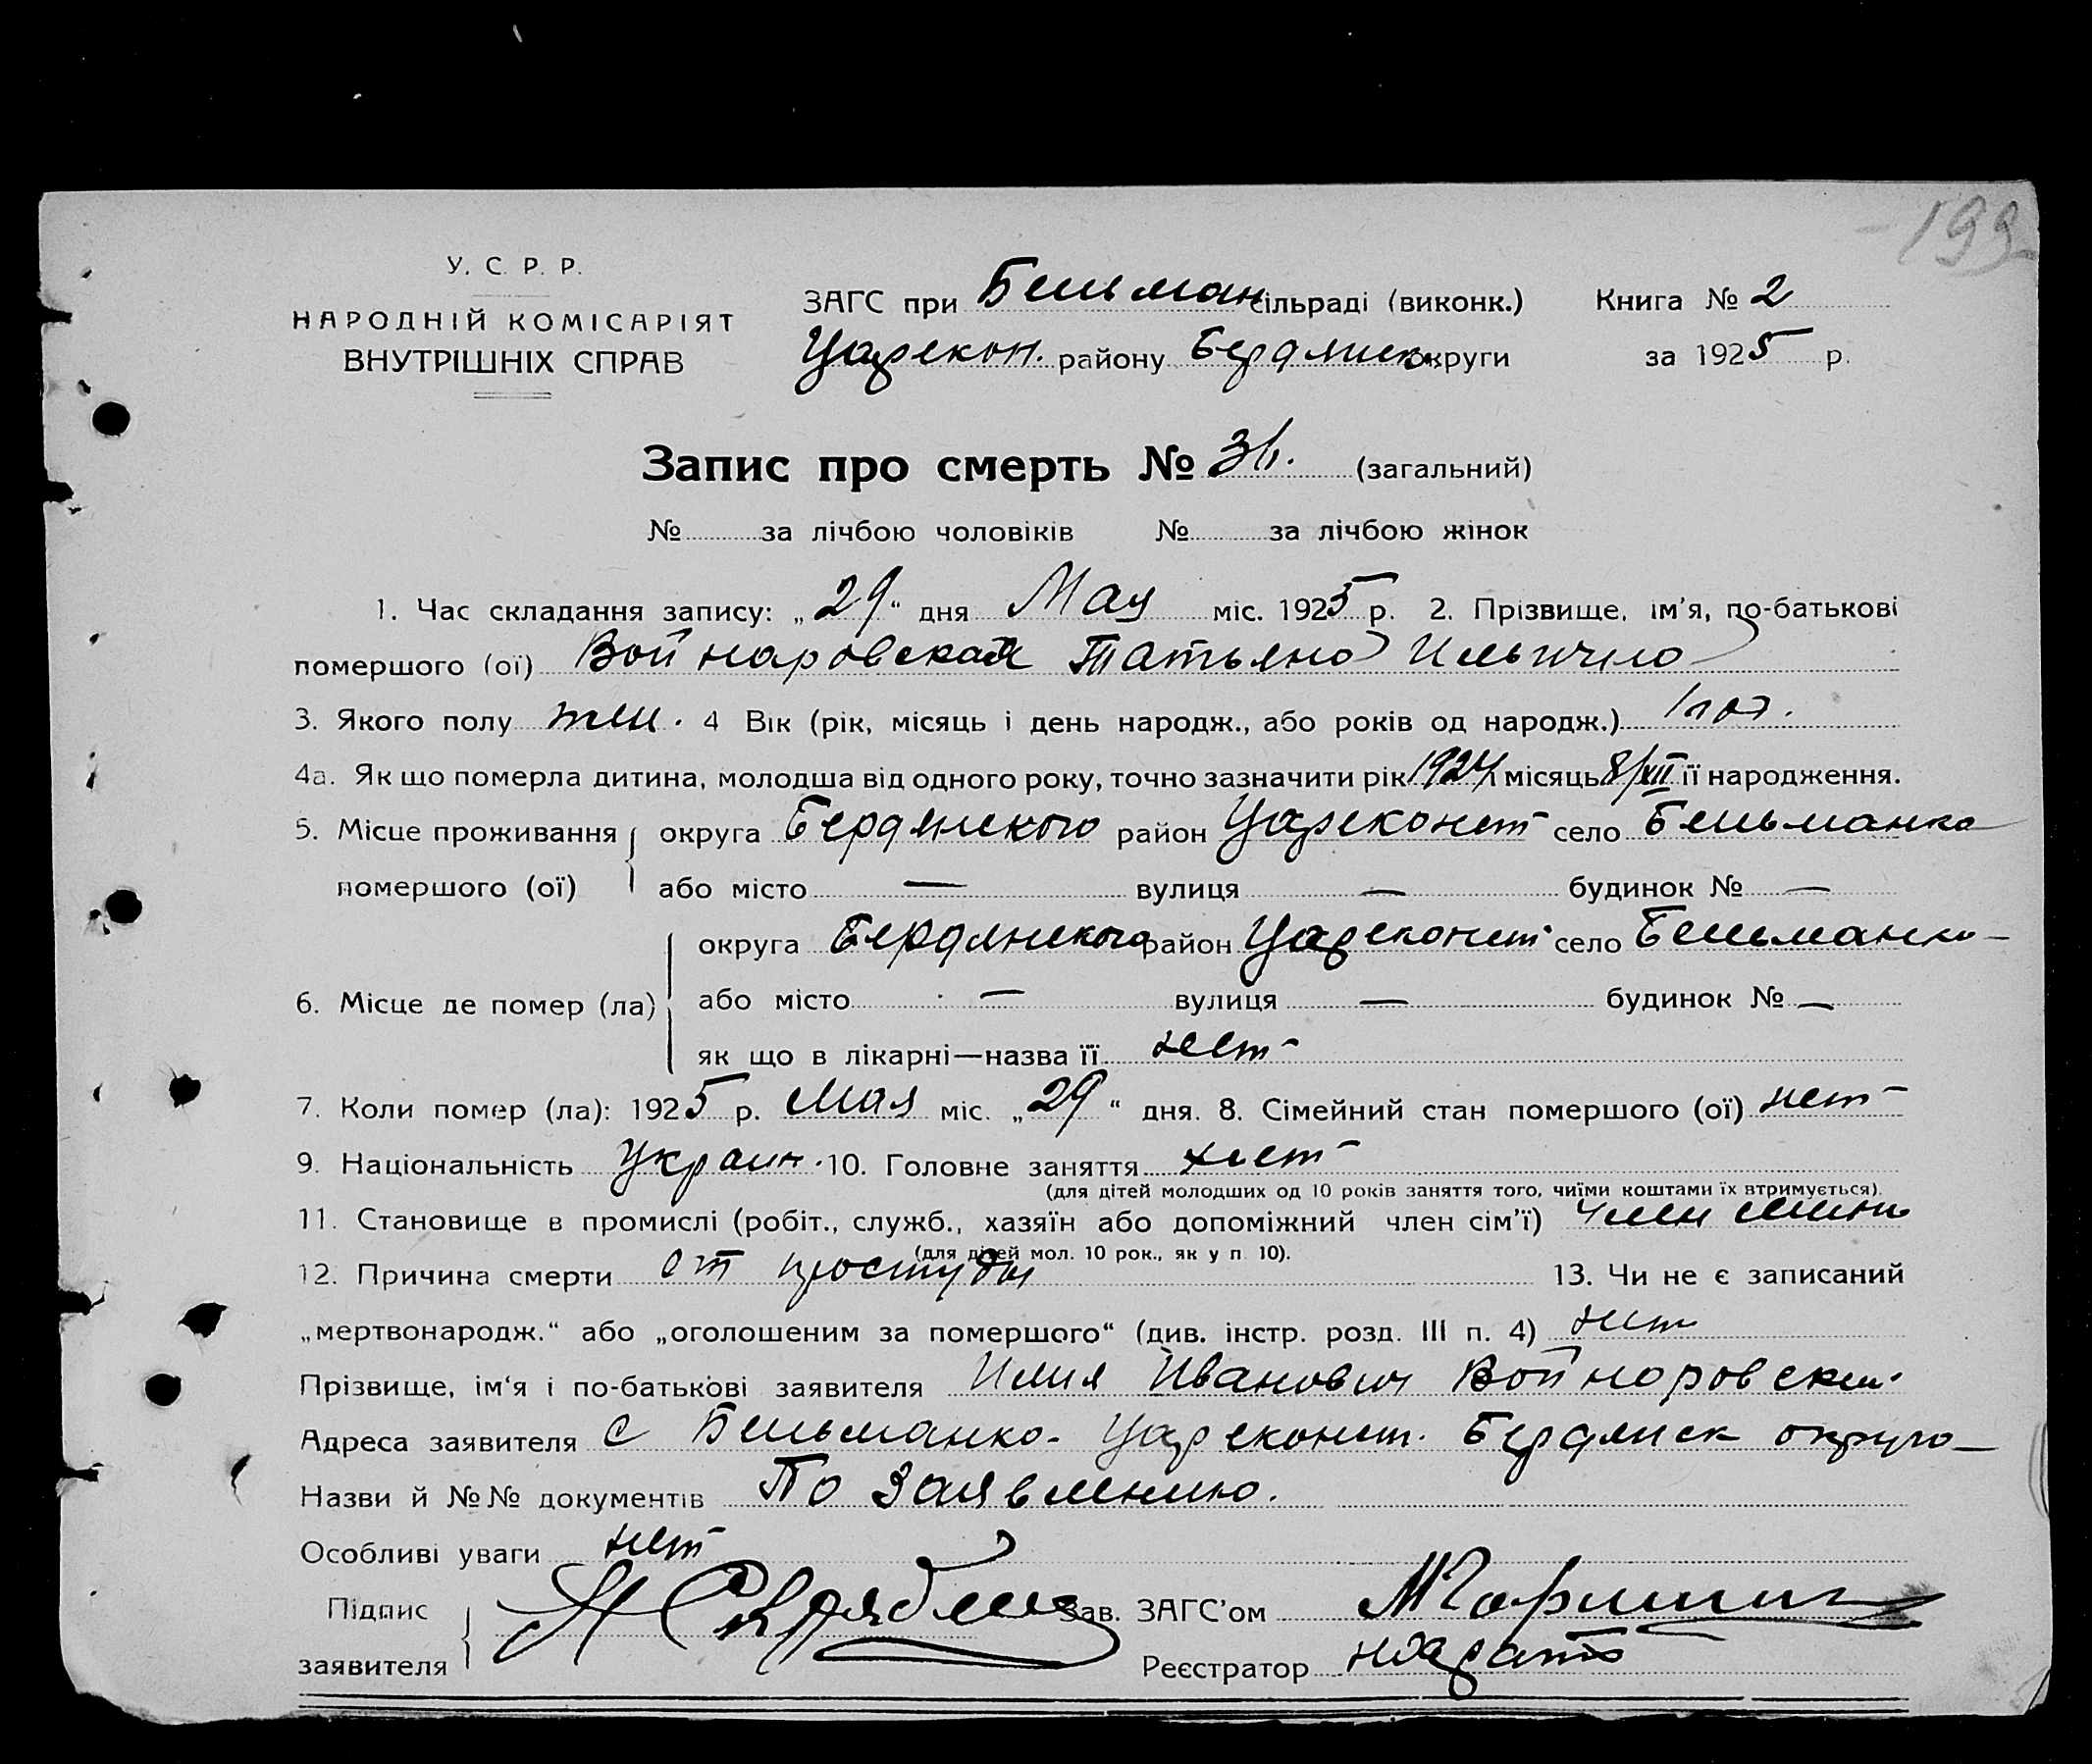 199
У. С. Р. Р.
НАРОДНІЙ КОМІСАРІЯТ
ВНУТРІШНІХ СПРАВ
ЗАГС при Бельман сільраді (виконк.) Книга № 2
Царекон. району Бердянск. округи за 1925 р.
Запис про смерть № (загальний)
№ за лічбою чоловіків № за лічбою жінок
1. Час складання запису: „29“ дня Мая міс. 1925 р. 2. Прізвище, ім'я, по-батькові
помершого (ої) Войнаровская Татьяна
3. Якого полу жен. 4 Вік (рік, місяць і день народж., або років од народж.)
4а. Як що померла дитина, молодша від одного року, точно зазначити рік 1924 і місяць 8/XII її народження.
5. Місце проживання округа Бердянского район Цареконст село Бельманка
помершого (ої) або місто — вулиця — будинок № —
округа Бердянского район Цареконст село Бельманка
6. Місце де помер (ла) або місто — вулиця — будинок № —
як що в лікарні—назва її нет
7. Коли помер (ла): 1925 р. Мая міс. „29“ дня. 8. Сімейний стан помершого (ої) нет
9. Національність Украин. 10. Головне заняття нет
(для дітей молодших од 10 років заняття того, чиїми коштами їх втримується).
11. Становище в промислі (робіт., служб., хазяїн або допоміжний член сім'ї) член семьи
(для дітей мол. 10 рок., як у п 10).
12. Причина смерти от простуды 13. Чи не є записаний
„мертвонародж.“ або „оголошеним за помершого“ (див. інстр. розд. III п. 4) нет
Прізвище, ім'я і по-батькові заявителя Илия Иванович Войнаровский
Адреса заявителя с Бельманка Цареконст. Бердянск округа
Назви й №№ документів По заявлению.
Особливі уваги нет
Підпис Зав. ЗАГС'ом
заявителя Реєстратор